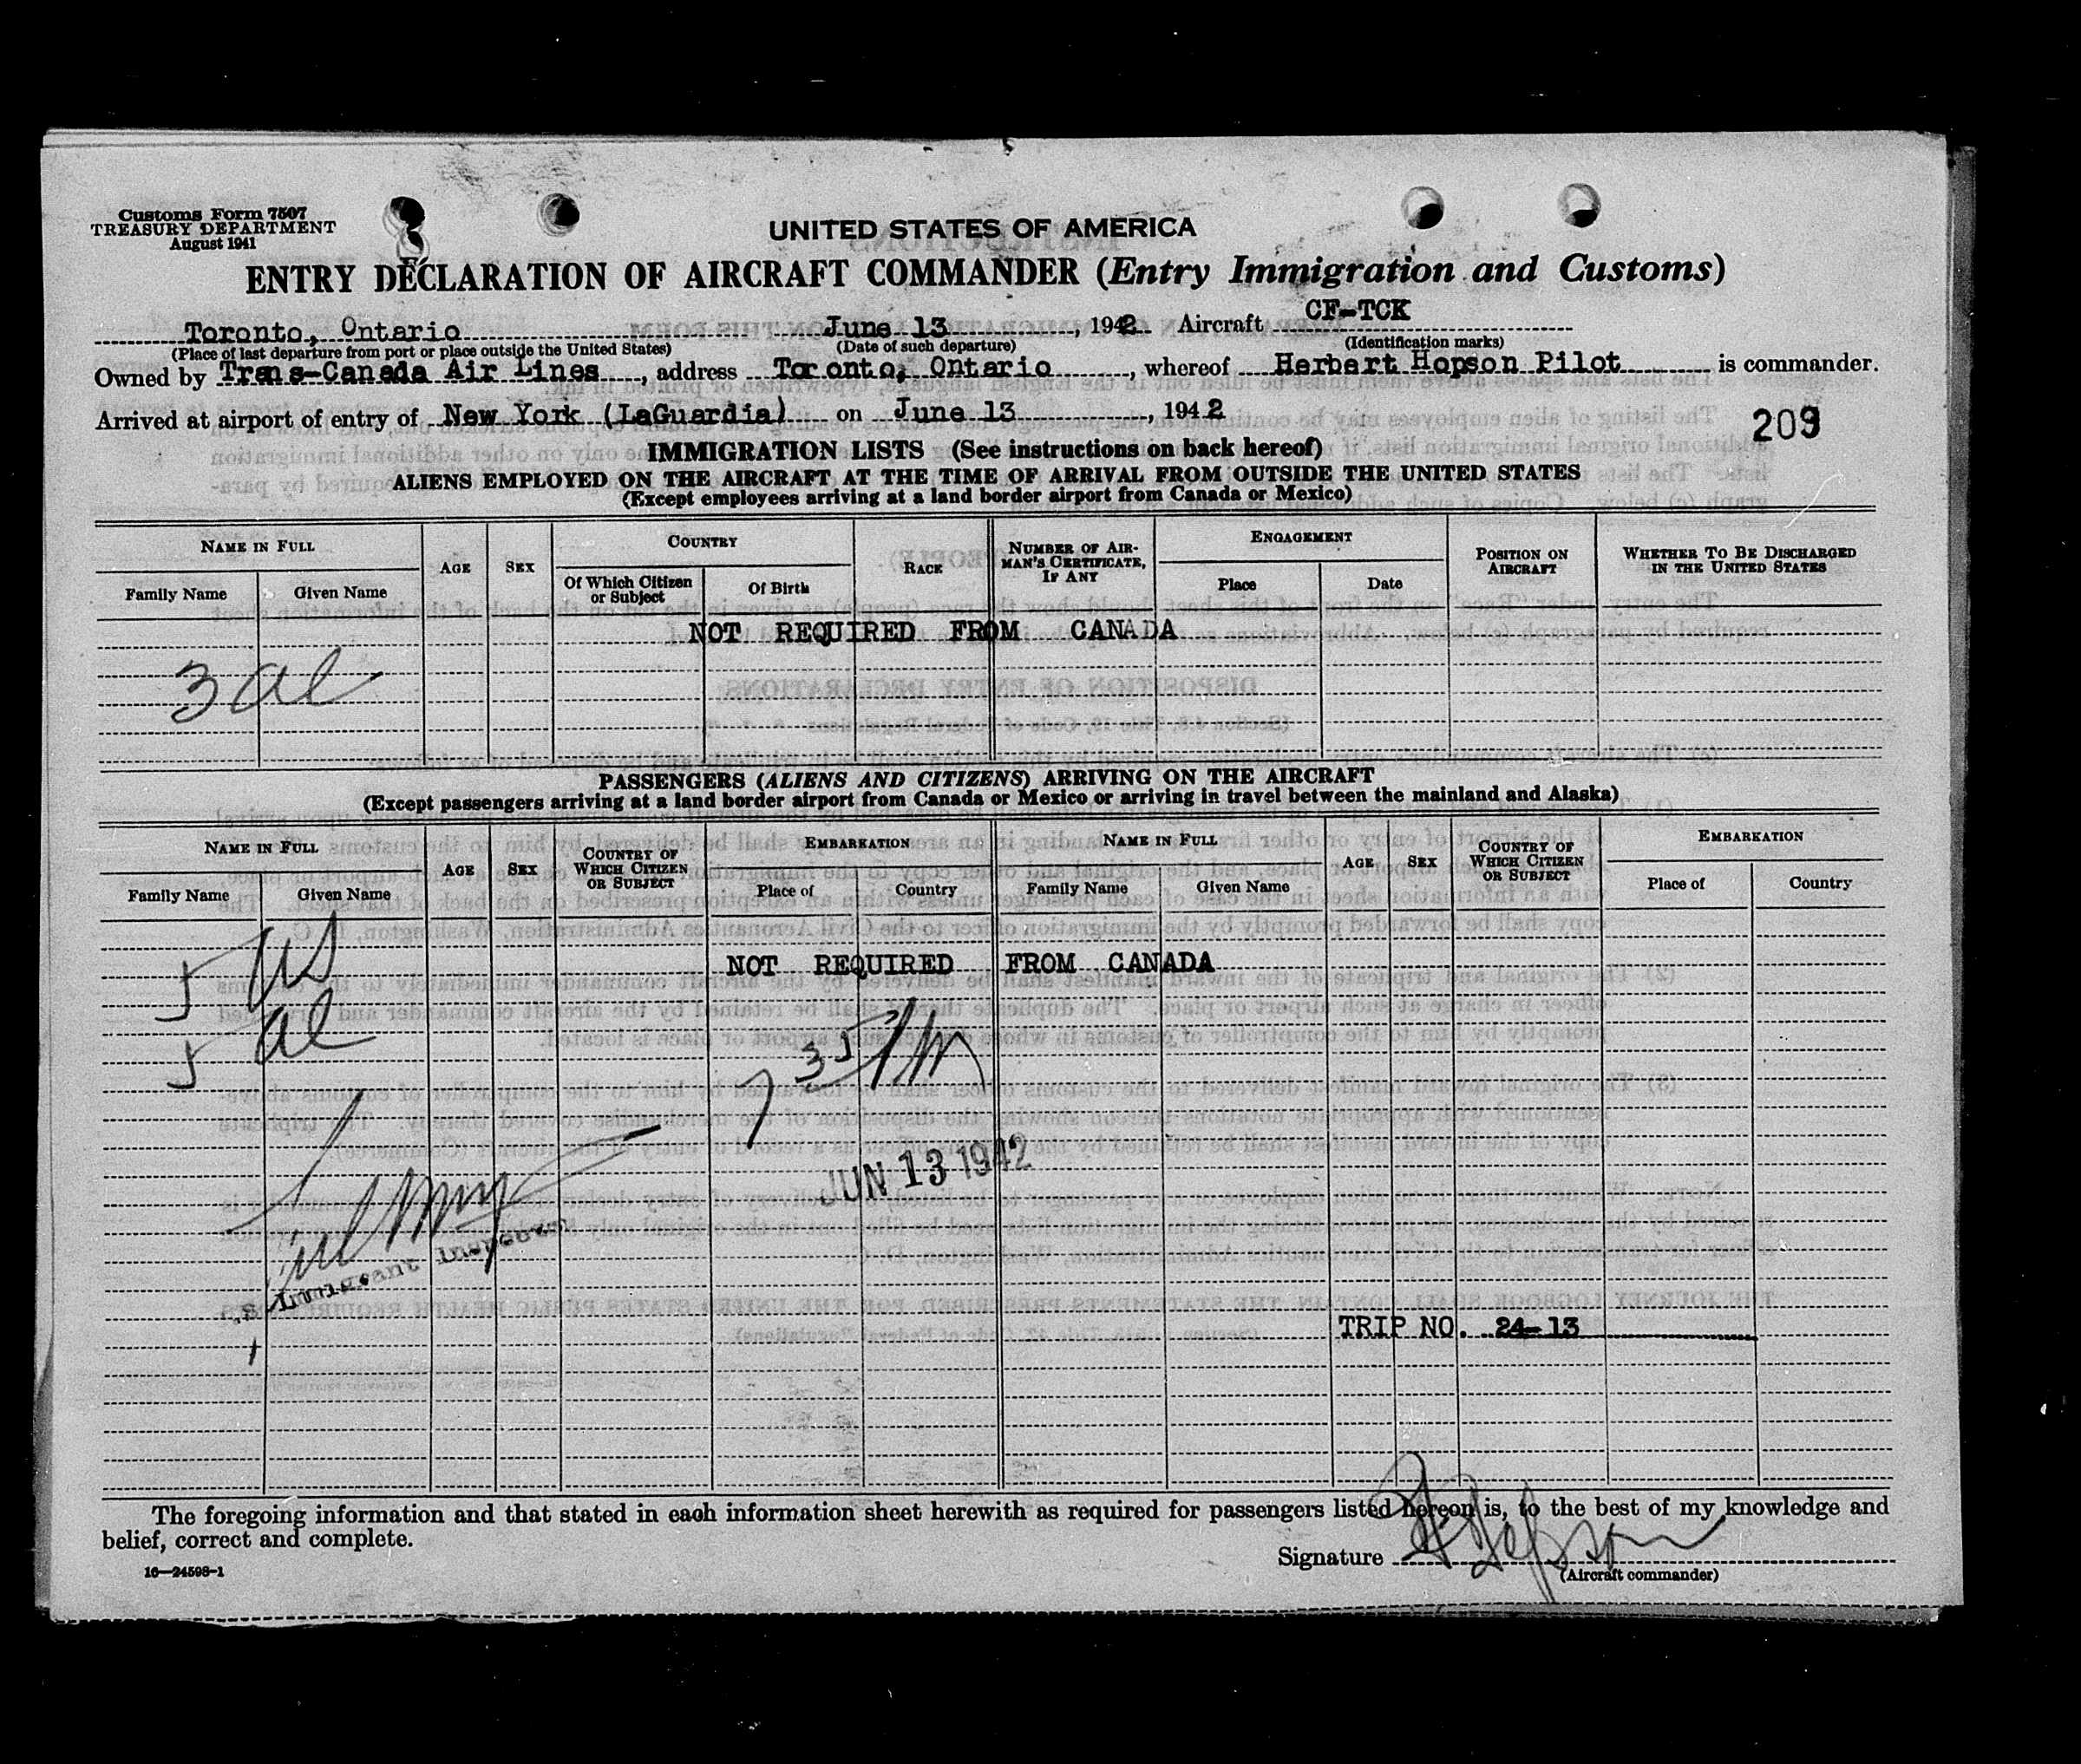 Customs Form 7507
TREASURY DEPARTMENT
August 1941
UNITED STATES OF AMERICA
ENTRY DECLARATION OF AIRCRAFT COMMANDER (Entry Immigration and Customs)
Toronto, Ontario June 13, 1942 Aircraft CF-TCK
(Place of last departure from port or place outside the United States) (Date of such departure) (Identification marks)
Owned by Trans-Canada Air Lines, address Toronto, Ontario, whereof Herbert Hopson Pilot is commander.
Arrived at airport of entry of New York (LaGuardia) on June 13, 1942
209
IMMIGRATION LISTS (See instructions on back hereof)
ALIENS EMPLOYED ON THE AIRCRAFT AT THE TIME OF ARRIVAL FROM OUTSIDE THE UNITED STATES
(Except employees arriving at a land border airport from Canada or Mexico)
NAME IN FULL AGE SEX COUNTRY RACE NUMBER OF AIRMAN'S CERTIFICATE, IF ANY ENGAGEMENT POSITION ON AIRCRAFT WHETHER TO BE DISCHARGED IN THE UNITED STATES
Family Name Given Name Of Which Citizen or Subject Of Birth Place Date
NOT REQUIRED FROM CANADA
3 al
PASSENGERS (ALIENS AND CITIZENS) ARRIVING ON THE AIRCRAFT
(Except passengers arriving at a land border airport from Canada or Mexico or arriving in travel between the mainland and Alaska)
NAME IN FULL AGE SEX COUNTRY OF WHICH CITIZEN OR SUBJECT EMBARKATION NAME IN FULL AGE SEX COUNTRY OF WHICH CITIZEN OR SUBJECT EMBARKATION
Family Name Given Name Place of Country Family Name Given Name Place of Country
5 US
NOT REQUIRED FROM CANADA
5 al
7 35 PM
JUN 13 1942
Immigrant Inspector
TRIP NO. 24-13
The foregoing information and that stated in each information sheet herewith as required for passengers listed hereon is, to the best of my knowledge and
belief, correct and complete.
Signature H Hopson
(Aircraft commander)
16—24598-1